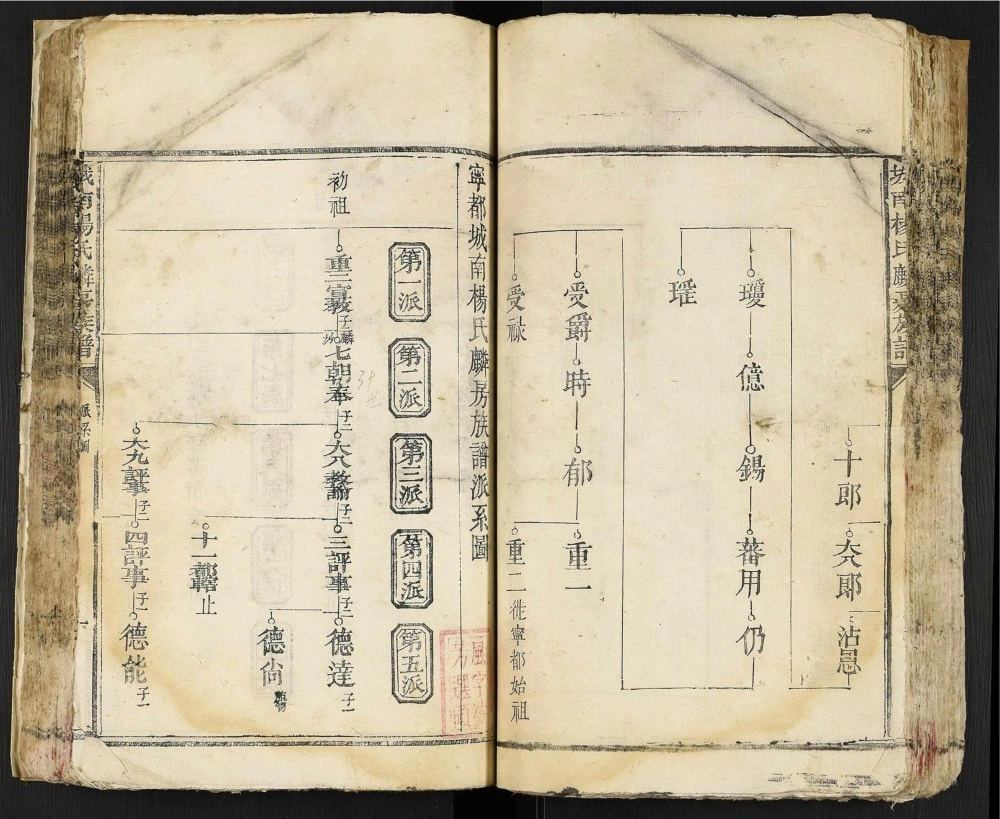 城南楊氏麟房族譜
十郎
六郎
沾恩
瓊
億
錫
蕃用
仍
瑶
受爵
時
郁
重一
受祿
重二徙寧都始祖
寧都城南楊氏麟房族譜派系圖
第一派
第二派
第三派
第四派
第五派
初祖
重二宣教
子麟
七朝奉
子二
大八教諭
子二
三評事
子二
德達
子一
德尙
十一都轄
止
大九評事
子一
四評事
子一
德能
子一
城南楊氏麟房族譜
派系圖